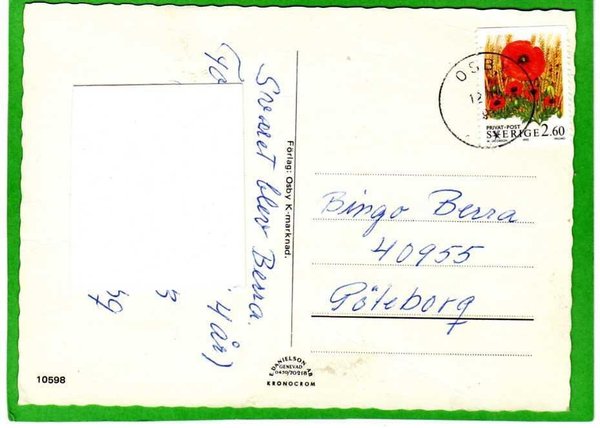 OSB
PRIVAT-POST
SVERIGE 2.60
Svaret blev Berra.
4 år)
Förlag: Osby K-marknad.
Bingo Berra
40955
Göteborg
10598
E. DANIELSON AB
GENEVAD
0430/70218
KRONOCROM